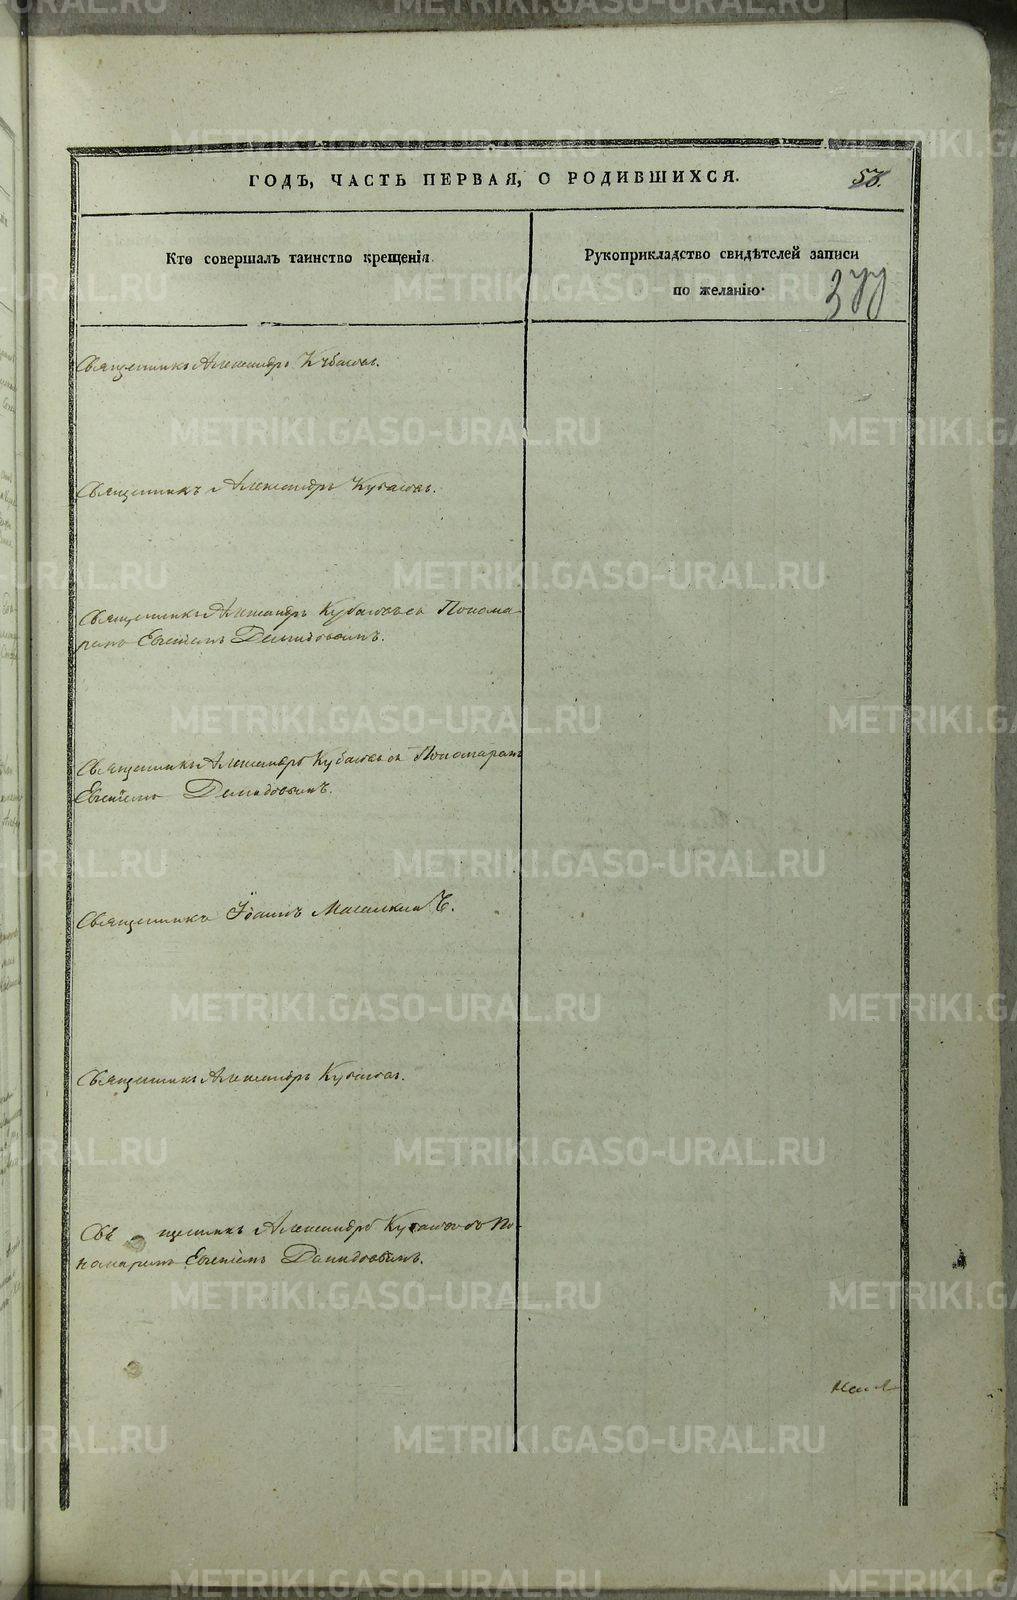 METRIKI.GASO-URAL.RU
ГОДЪ, ЧАСТЬ ПЕРВАЯ, О РОДИВШИХСЯ.
Кто совершалъ таинство крещенія.
Рукоприкладство свидѣтелей записи
по желанію.
377
Священникъ Александръ Кубасовъ.
Священникъ Александръ Кубасовъ.
Священникъ Александръ Кубасовъ съ Понома-
ремъ Евгеніемъ Демидовымъ.
Священникъ Александръ Кубасовъ съ Пономаремъ
Евгеніемъ Демидовымъ.
Священникъ Іоаннъ
Священникъ Александръ Кубасовъ.
Священникъ Александръ Кубасовъ съ По-
номаремъ Евгеніемъ Демидовымъ.